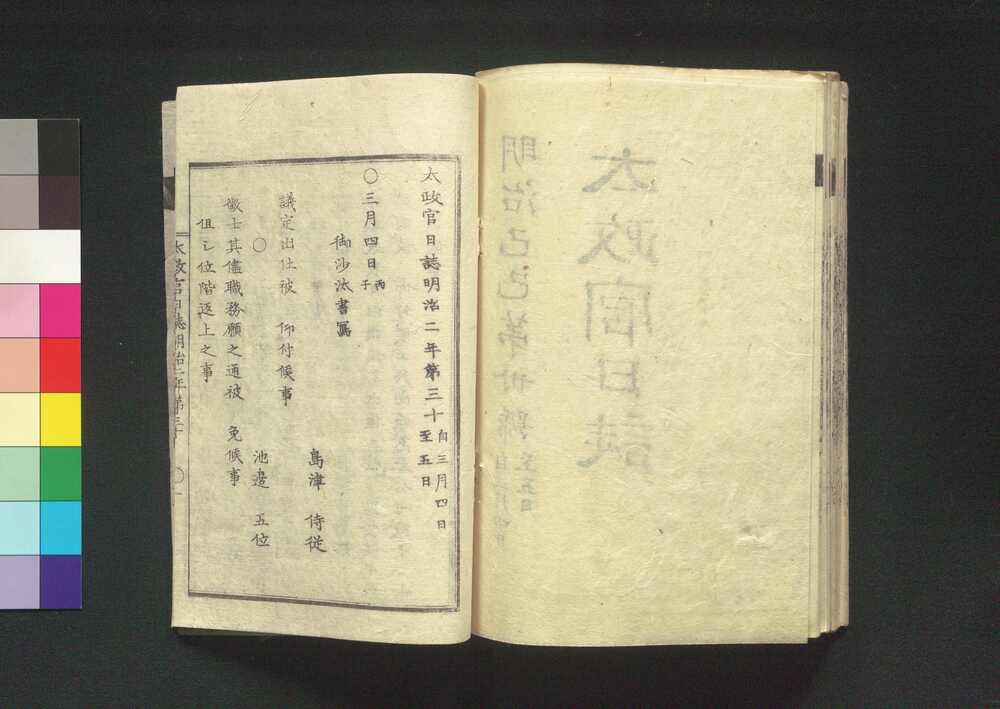 太政官日誌明治二年第三十 自三月四日 至五日
〇三月四日 丙子
御沙汰書寫
島津 侍従
議定出仕被 仰付候事
〇 池邉 五位
徴士其儘職務願之通被 免候事
但シ位階返上之事
太政官日誌明治二年第三十 〇一
太政官日誌
明治己巳第卅號